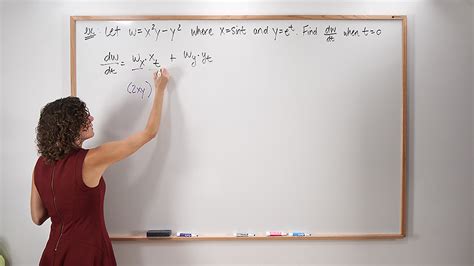 ex: Let w = x²y - y² where x = sint and y = eᵗ. Find dw/dt when t = 0
dw/dt = wₓ · xₜ + w_y · yₜ
(2xy)